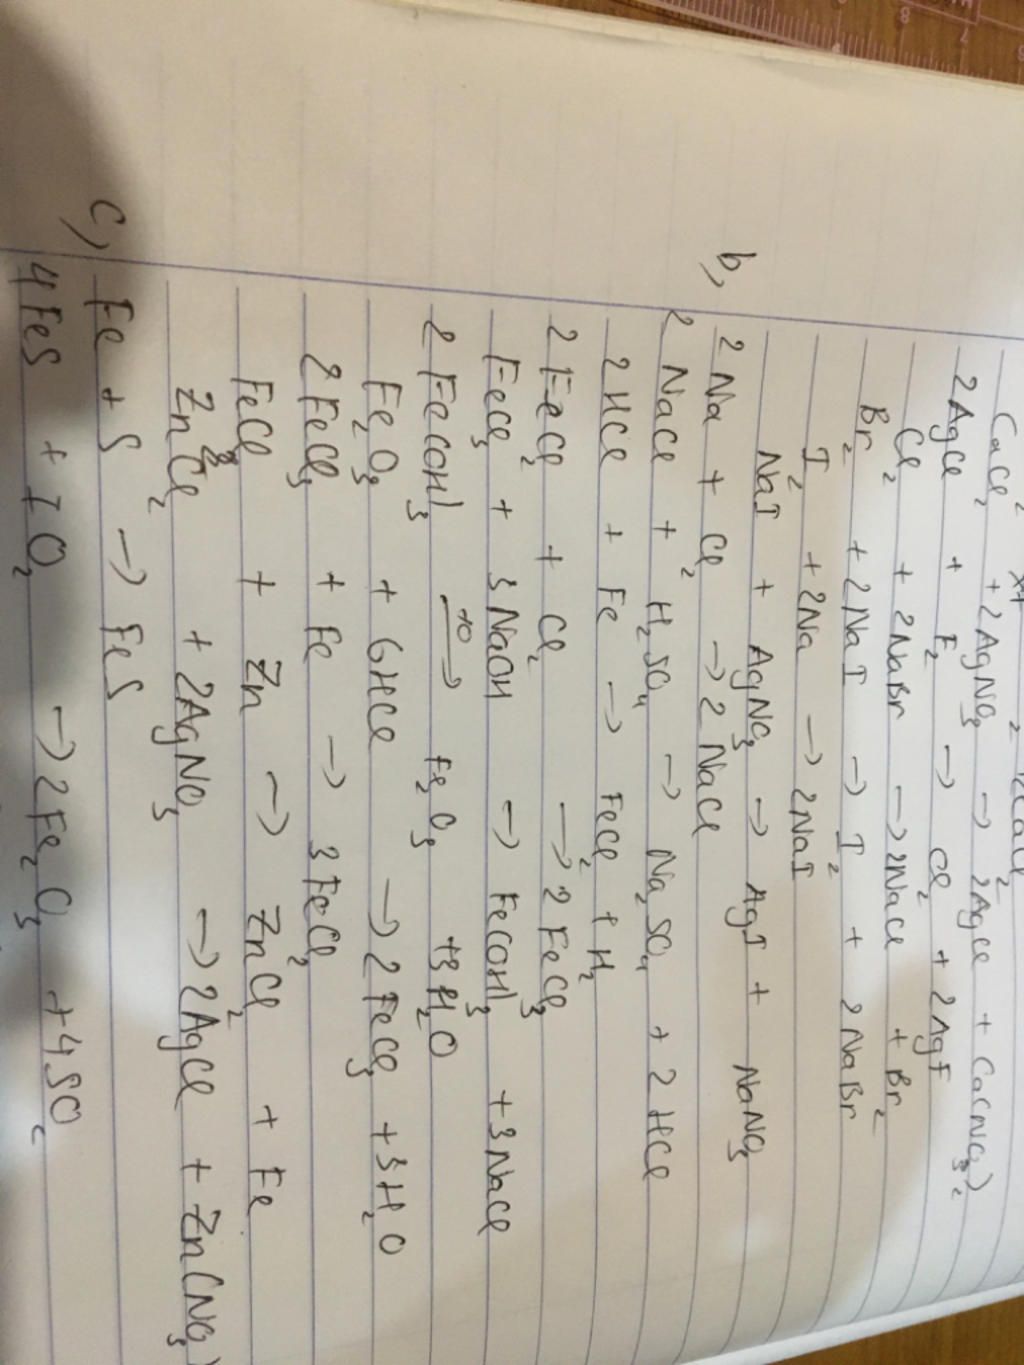 CaCl2 + 2AgNO3 → 2AgCl + Ca(NO3)2
2AgCl + F2 → Cl2 + 2AgF
Cl2 + 2NaBr → 2NaCl + Br2
Br2 + 2NaI → I2 + 2NaBr
I2 + 2Na → 2NaI
NaI + AgNO3 → AgI + NaNO3
b, 2Na + Cl2 → 2NaCl
2NaCl + H2SO4 → Na2SO4 + 2HCl
2HCl + Fe → FeCl2 + H2
2FeCl2 + Cl2 → 2FeCl3
FeCl3 + 3NaOH → Fe(OH)3 + 3NaCl
2Fe(OH)3 →to Fe2O3 + 3H2O
Fe2O3 + 6HCl → 2FeCl3 + 3H2O
2FeCl3 + Fe → 3FeCl2
FeCl2 + Zn → ZnCl2 + Fe
ZnCl2 + 2AgNO3 → 2AgCl + Zn(NO3)
c, Fe + S → FeS
4FeS + 7O2 → 2Fe2O3 + 4SO2